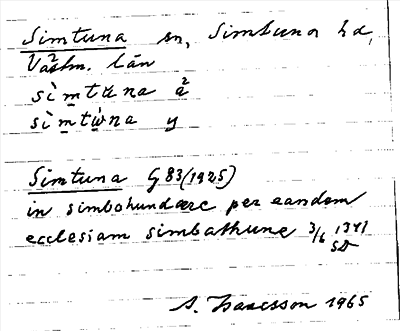 Simtuna sn, Simtuna hd,
Västm. län
sìmtuna å
sìmtùna y
Simtuna G 83 (1925)
in simbohundære per eandem
ecclesiam simbathune 3/6 1341
SD
A. Isaacsson 1965